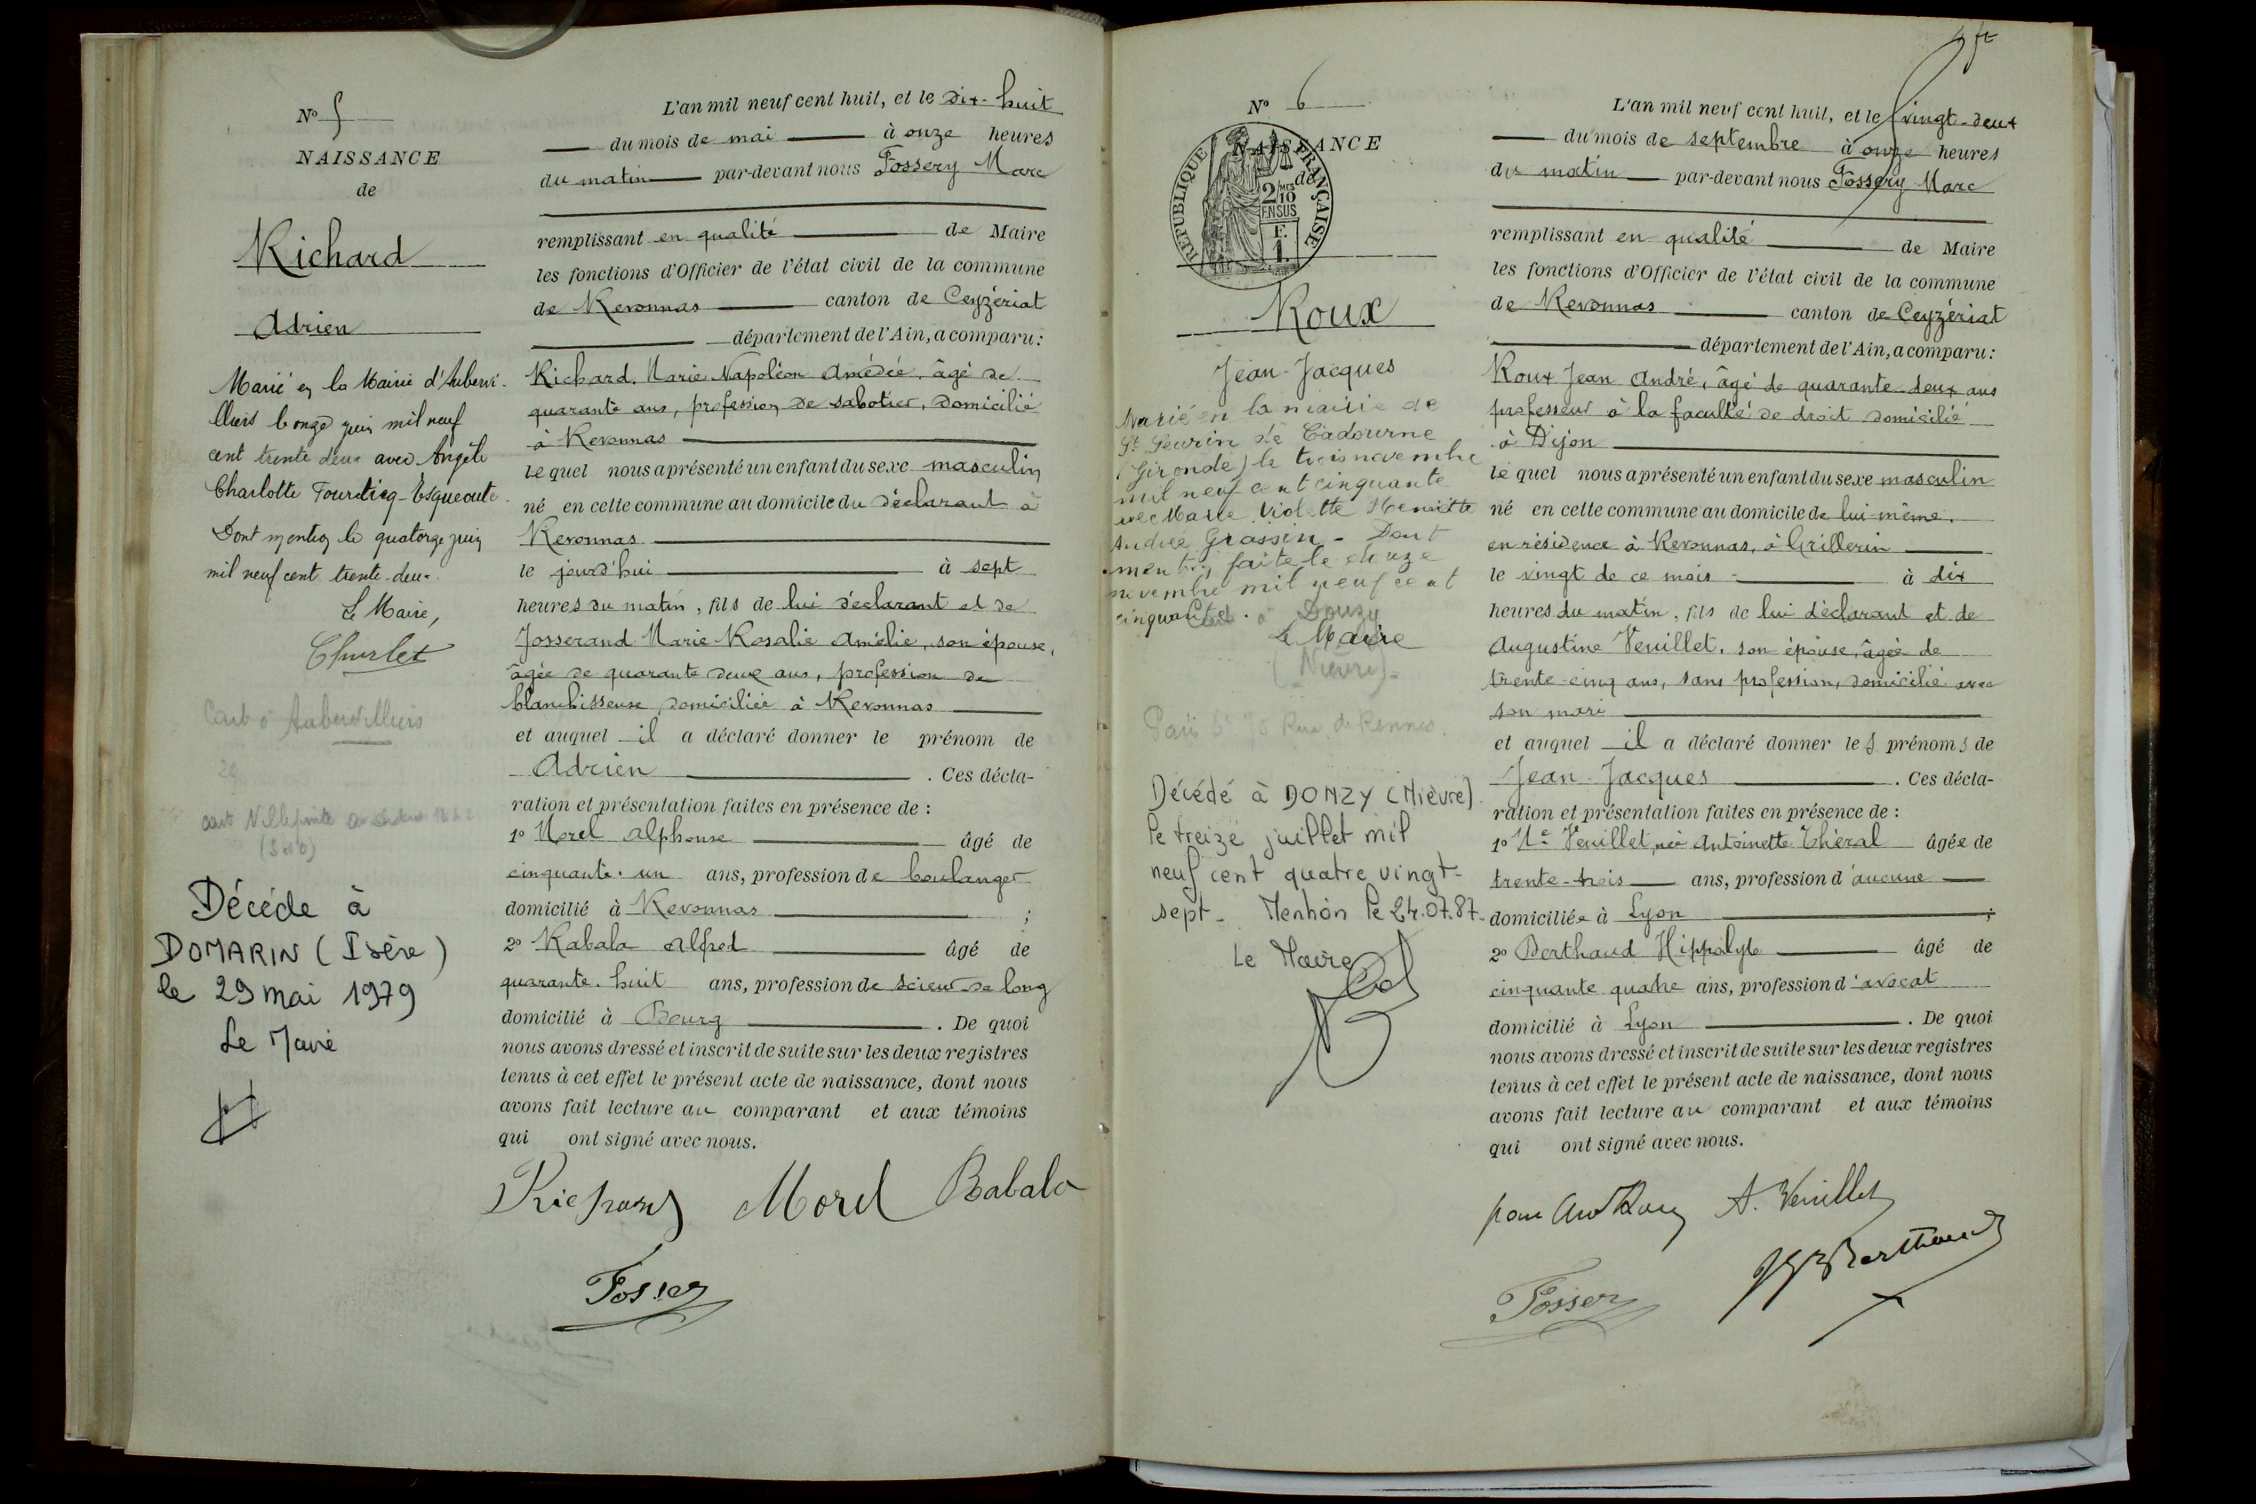 N° 5
NAISSANCE
de
Richard
Adrien
Marié en la Mairie d'Aubervi-
lliers le onze juin mil neuf
cent trente deux avec Angèle
Charlotte Tourticq-Esquecute.
Dont mention le quatorze juin
mil neuf cent trente-deux.
Le Maire,
Aubervilliers
Décédé à
DOMARIN (Isère)
le 29 mai 1979
Le Maire
L'an mil neuf cent huit, et le dix-huit
du mois de mai à onze heures
du matin par-devant nous Fossery Marc
remplissant en qualité de Maire
les fonctions d'Officier de l'état civil de la commune
de Revonnas canton de Ceyzériat
département de l'Ain, a comparu:
Richard Marie Napoléon Amédée, âgé de
quarante ans, profession de sabotier, domicilié
à Revonnas
lequel nous a présenté un enfant du sexe masculin
né en cette commune au domicile du déclarant à
Revonnas
le jourd'hui à sept
heures du matin, fils de lui déclarant et de
Josserand Marie Rosalie Amélie, son épouse,
âgée de quarante deux ans, profession de
blanchisseuse, domiciliée à Revonnas
et auquel il a déclaré donner le prénom de
Adrien . Ces décla-
ration et présentation faites en présence de :
1° Morel Alphonse âgé de
cinquante-un ans, profession de boulanger
domicilié à Revonnas ;
2° Rabala Alfred âgé de
quarante-huit ans, profession de scieur de long
domicilié à Bourg . De quoi
nous avons dressé et inscrit de suite sur les deux registres
tenus à cet effet le présent acte de naissance, dont nous
avons fait lecture au comparant et aux témoins
qui ont signé avec nous.
Richard Morel Rabala
Fossery
N° 6
NAISSANCE
de
REPUBLIQUE FRANÇAISE
2/10 EN SUS
F. 1.
Roux
Jean-Jacques
Marié en la mairie de
St Seurin de Cadourne
(Gironde) le trois novembre
mil neuf cent cinquante
avec Marie Violette Henriette
Andrée Grassin - Dont
mention faite le douze
novembre mil neuf cent
cinquante.
Donzy
Le Maire
(Nièvre)
Paris 6e 70 Rue de Rennes.
Décédé à DONZY (Nièvre)
le treize juillet mil
neuf cent quatre vingt-
sept - Mention le 24.07.87.
Le Maire
L'an mil neuf cent huit, et le vingt-deux
du mois de septembre à onze heures
du matin par-devant nous Fossery Marc
remplissant en qualité de Maire
les fonctions d'Officier de l'état civil de la commune
de Revonnas canton de Ceyzériat
département de l'Ain, a comparu:
Roux Jean André, âgé de quarante-deux ans
professeur à la faculté de droit domicilié
à Dijon
lequel nous a présenté un enfant du sexe masculin
né en cette commune au domicile de lui-même.
en résidence à Revonnas, à Grillerin
le vingt de ce mois à dix
heures du matin, fils de lui déclarant et de
Augustine Veuillet, son épouse, âgée de
trente-cinq ans, sans profession, domicilié avec
son mari
et auquel il a déclaré donner les prénoms de
Jean-Jacques . Ces décla-
ration et présentation faites en présence de :
1° Me Veuillet, née Antoinette Théral âgée de
trente-trois ans, profession d'aucune
domiciliée à Lyon ;
2° Berthaud Hippolyte âgé de
cinquante quatre ans, profession d'avocat
domicilié à Lyon . De quoi
nous avons dressé et inscrit de suite sur les deux registres
tenus à cet effet le présent acte de naissance, dont nous
avons fait lecture au comparant et aux témoins
qui ont signé avec nous.
A. Veuillet
Berthaud
Fossery